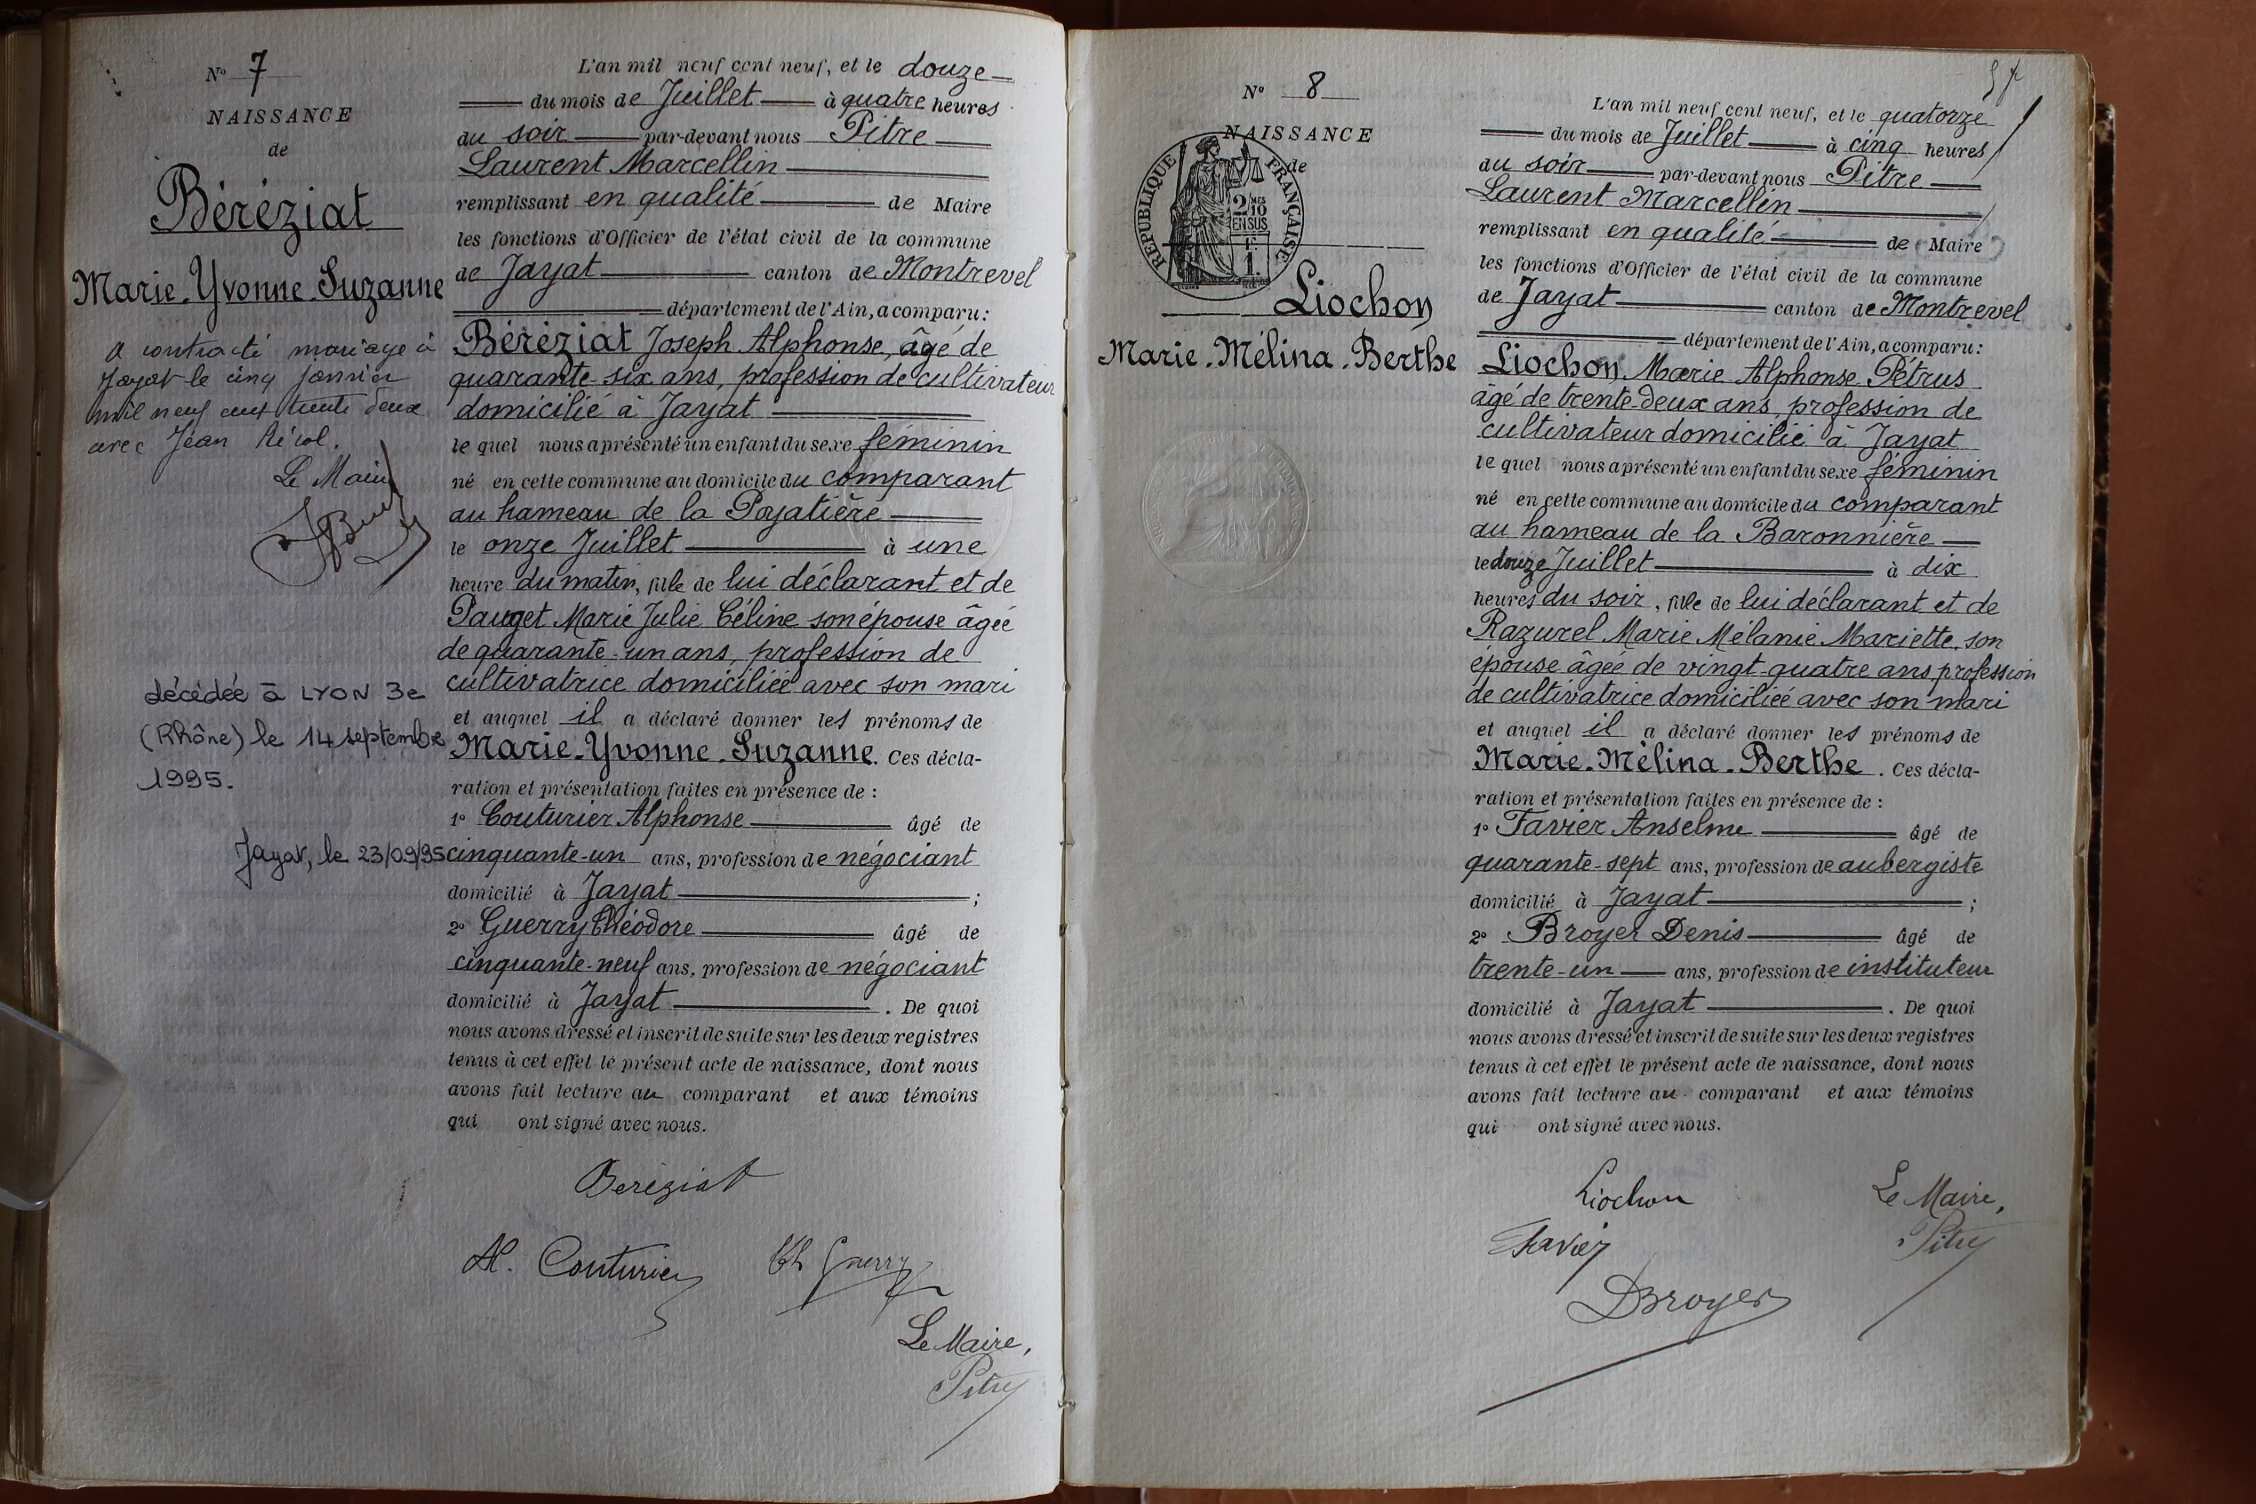 N° 7
NAISSANCE
de
Béréziat
Marie-Yvonne-Suzanne
a contracté mariage à
Jayat le cinq Janvier
mil neuf cent trente deux
avec Jean
Le Maire
décédée à LYON 3e
(Rhône) le 14 septembre
1995.
Jayat, le 23/09/95
L'an mil neuf cent neuf, et le douze
du mois de Juillet à quatre heures
du soir par-devant nous Pitre
Laurent Marcellin
remplissant en qualité de Maire
les fonctions d'Officier de l'état civil de la commune
de Jayat canton de Montrevel
département de l'Ain, a comparu :
Béréziat Joseph Alphonse, âgé de
quarante-six ans, profession de cultivateur
domicilié à Jayat
le quel nous a présenté un enfant du sexe féminin
né en cette commune au domicile du comparant
au hameau de la Poyatière
le onze Juillet à une
heure du matin, fille de lui déclarant et de
Pauget Marie Julie Céline son épouse âgée
de quarante-un ans, profession de
cultivatrice domiciliée avec son mari
et auquel il a déclaré donner les prénoms de
Marie-Yvonne-Suzanne. Ces décla-
ration et présentation faites en présence de :
1° Couturier Alphonse âgé de
cinquante-un ans, profession de négociant
domicilié à Jayat ;
2° Guerry Théodore âgé de
cinquante-neuf ans, profession de négociant
domicilié à Jayat . De quoi
nous avons dressé et inscrit de suite sur les deux registres
tenus à cet effet le présent acte de naissance, dont nous
avons fait lecture au comparant et aux témoins
qui ont signé avec nous.
Béréziat
Al. Couturier Th Guerry
Le Maire,
Pitre
57
N° 8
NAISSANCE
de
RÉPUBLIQUE FRANÇAISE
2/10 MES
EN SUS
Liochon
Marie-Mélina-Berthe
L'an mil neuf cent neuf, et le quatorze
du mois de Juillet à cinq heures
du soir par-devant nous Pitre
Laurent Marcellin
remplissant en qualité de Maire
les fonctions d'Officier de l'état civil de la commune
de Jayat canton de Montrevel
département de l'Ain, a comparu :
Liochon Marie Alphonse Pétrus
âgé de trente-deux ans, profession de
cultivateur domicilié à Jayat
le quel nous a présenté un enfant du sexe féminin
né en cette commune au domicile du comparant
au hameau de la Baronnière
le douze Juillet à dix
heures du soir, fille de lui déclarant et de
Razurel Marie Mélanie Mariette, son
épouse âgée de vingt-quatre ans profession
de cultivatrice domiciliée avec son mari
et auquel il a déclaré donner les prénoms de
Marie-Mélina-Berthe . Ces décla-
ration et présentation faites en présence de :
1° Favier Anselme âgé de
quarante-sept ans, profession de aubergiste
domicilié à Jayat ;
2° Broyer Denis âgé de
trente-un ans, profession de instituteur
domicilié à Jayat . De quoi
nous avons dressé et inscrit de suite sur les deux registres
tenus à cet effet le présent acte de naissance, dont nous
avons fait lecture au comparant et aux témoins
qui ont signé avec nous.
Liochon Le Maire,
Favier Pitre
DBroyer